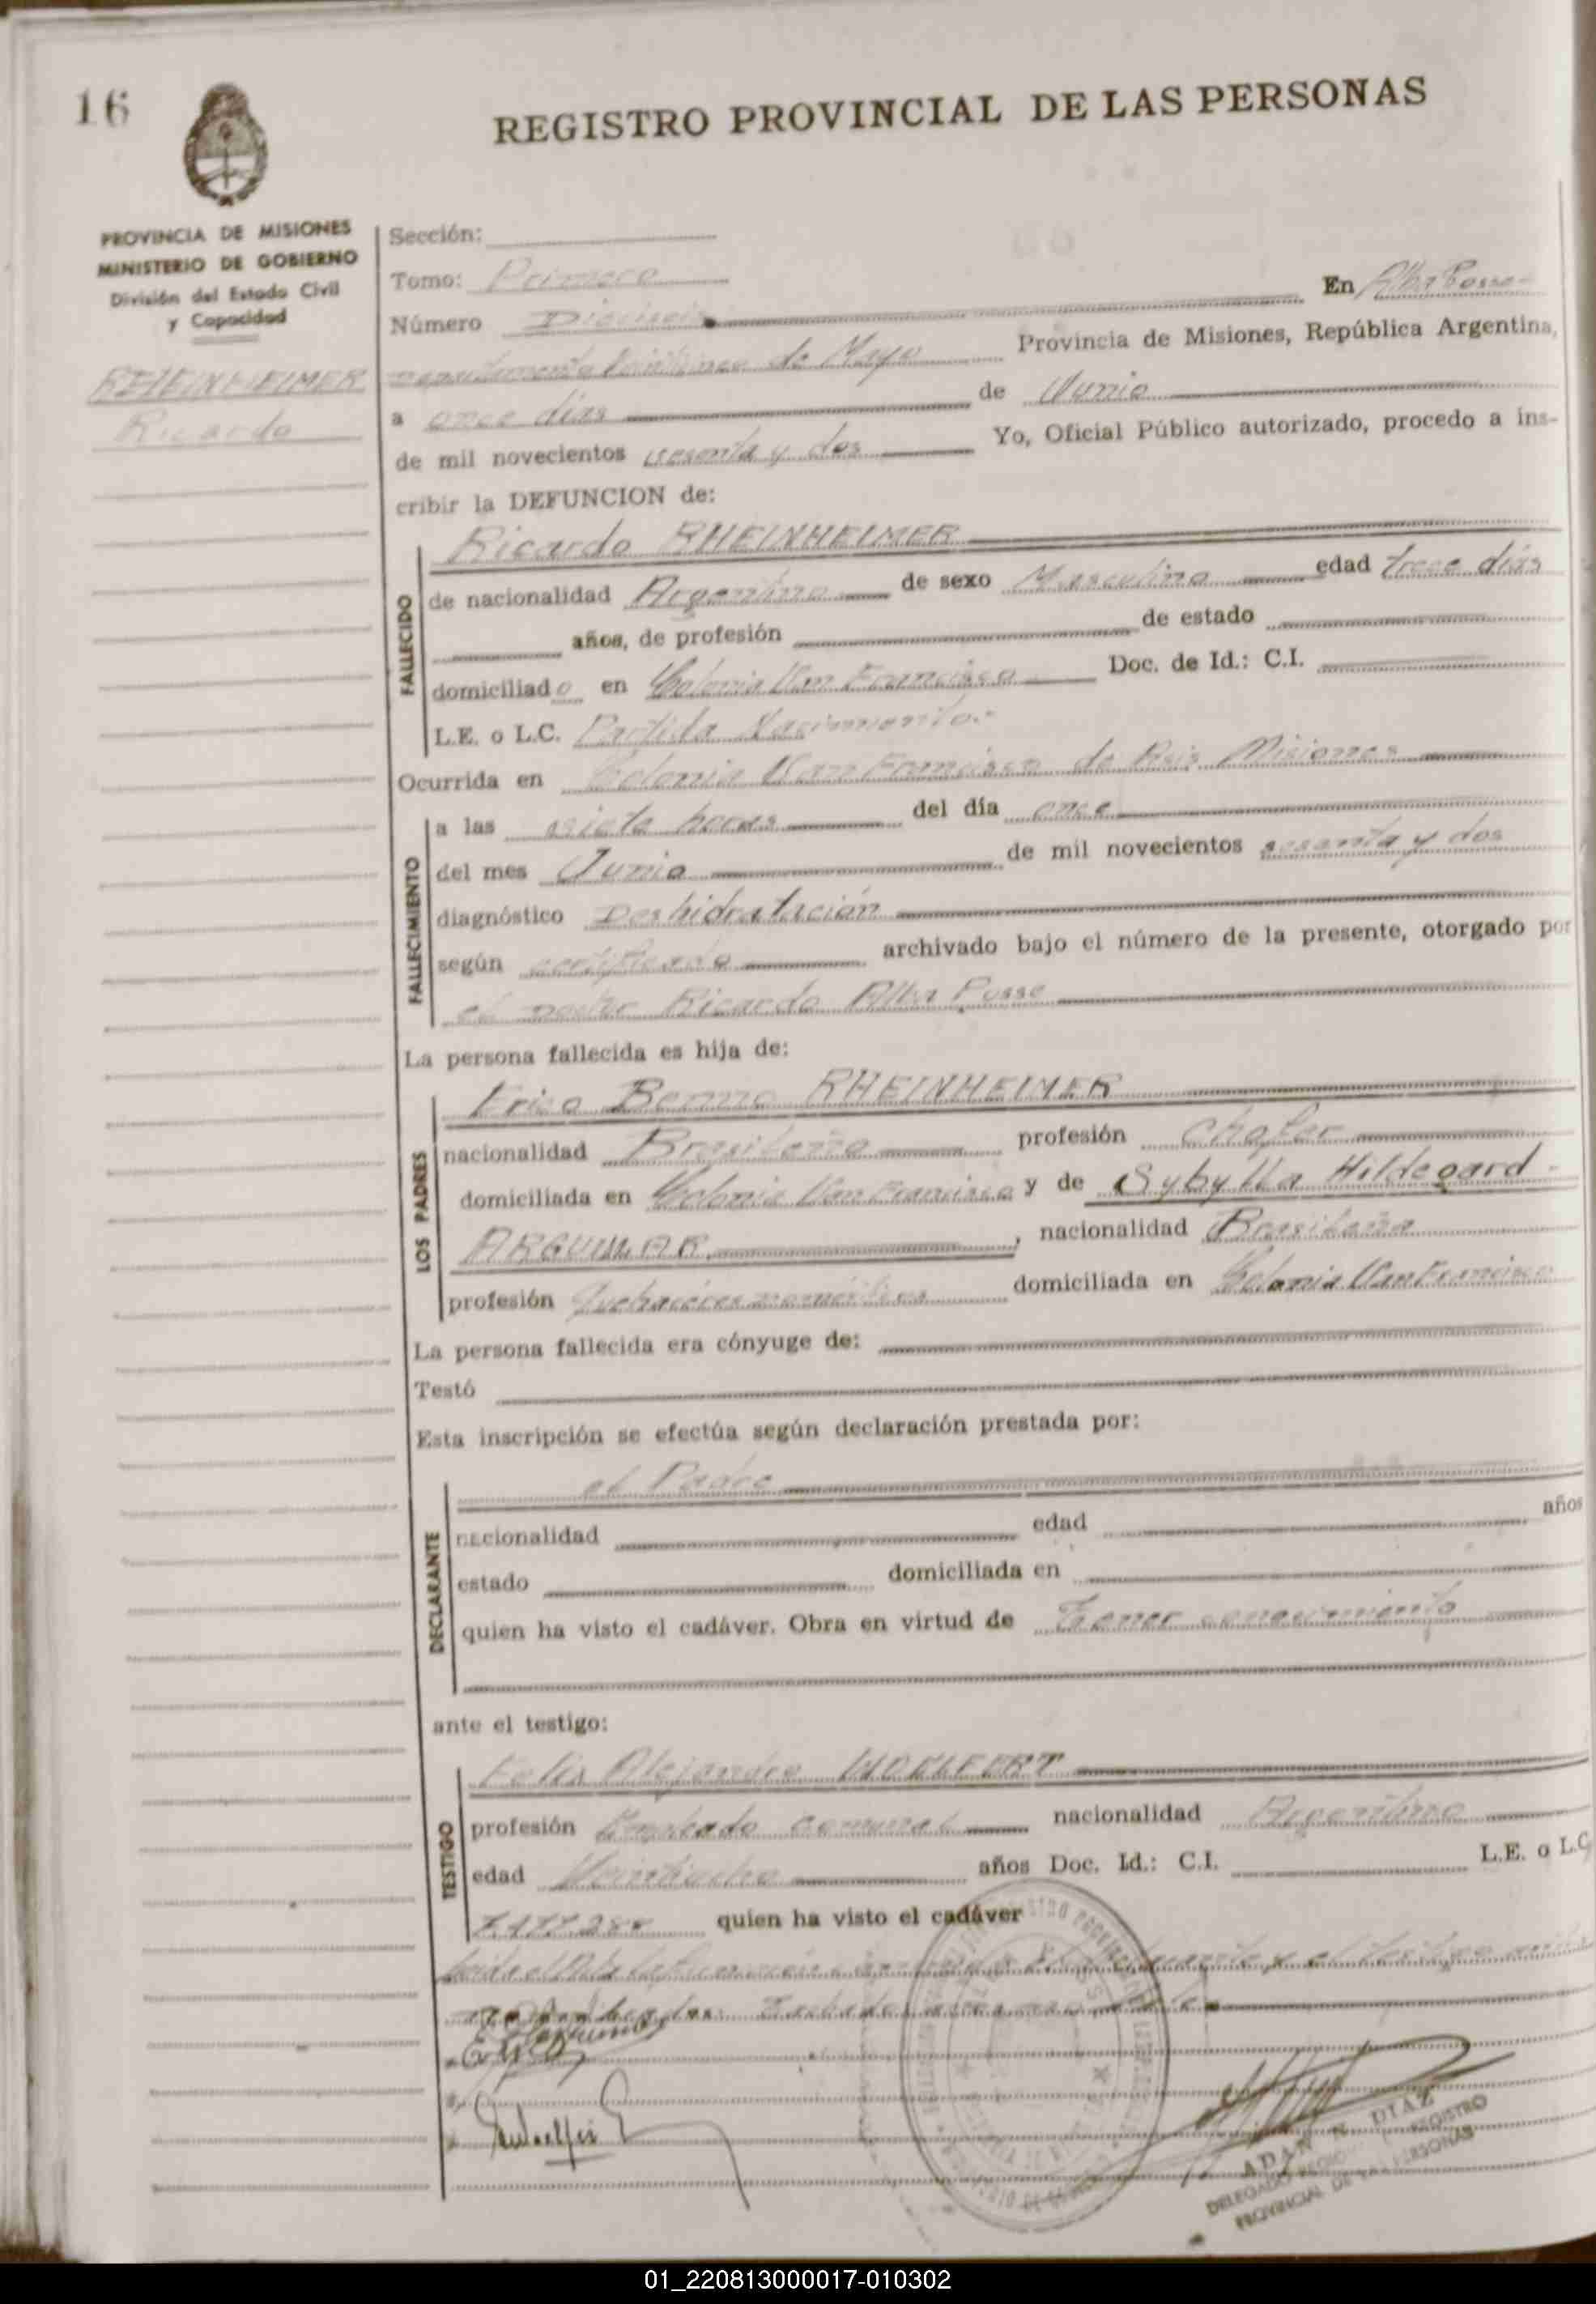 16
REGISTRO PROVINCIAL DE LAS PERSONAS
PROVINCIA DE MISIONES
MINISTERIO DE GOBIERNO
División del Estado Civil
y Capacidad
RHEINHEIMER
Ricardo
Sección:
Tomo: Primero
Número Dieciseis En Alba Posse
departamento Veinticinco de Mayo Provincia de Misiones, República Argentina,
a once días de Junio
de mil novecientos sesenta y dos Yo, Oficial Público autorizado, procedo a ins-
cribir la DEFUNCION de:
Ricardo RHEINHEIMER
FALLECIDO
de nacionalidad Argentina de sexo Masculino edad trece días
años, de profesión de estado
domiciliado en Colonia San Francisco Doc. de Id.: C.I.
L.E. o L.C. Partida Nacimiento.-
Ocurrida en Colonia San Francisco de Asis Misiones
FALLECIMIENTO
a las siete horas del día once
del mes Junio de mil novecientos sesenta y dos
diagnóstico Deshidratación
según certificado archivado bajo el número de la presente, otorgado por
el Doctor Ricardo Alba Posse
La persona fallecida es hija de:
Erico Benno RHEINHEIMER
LOS PADRES
nacionalidad Brasileña profesión Chofer
domiciliada en Colonia San Francisco y de Sybylla Hildegard
nacionalidad Brasileña
profesión Quehaceres domésticos domiciliada en Colonia San Francisco
La persona fallecida era cónyuge de:
Testó
Esta inscripción se efectúa según declaración prestada por:
el Padre
DECLARANTE
nacionalidad edad años
estado domiciliada en
quien ha visto el cadáver. Obra en virtud de Tener conocimiento
ante el testigo:
Felix Alejandro
TESTIGO
profesión Empleado comunal nacionalidad Argentino
edad Veintiocho años Doc. Id.: C.I. L.E. o L.C
quien ha visto el cadáver
el testigo
ADAN N DIAZ
DELEGADO REGISTRO
PROVINCIAL DE LAS PERSONAS
01_220813000017-010302